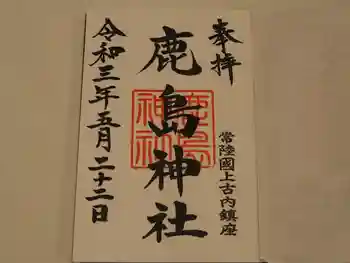 奉拝
常陸國上古内鎮座
鹿島神社
鹿島神社
令和三年五月二十二日